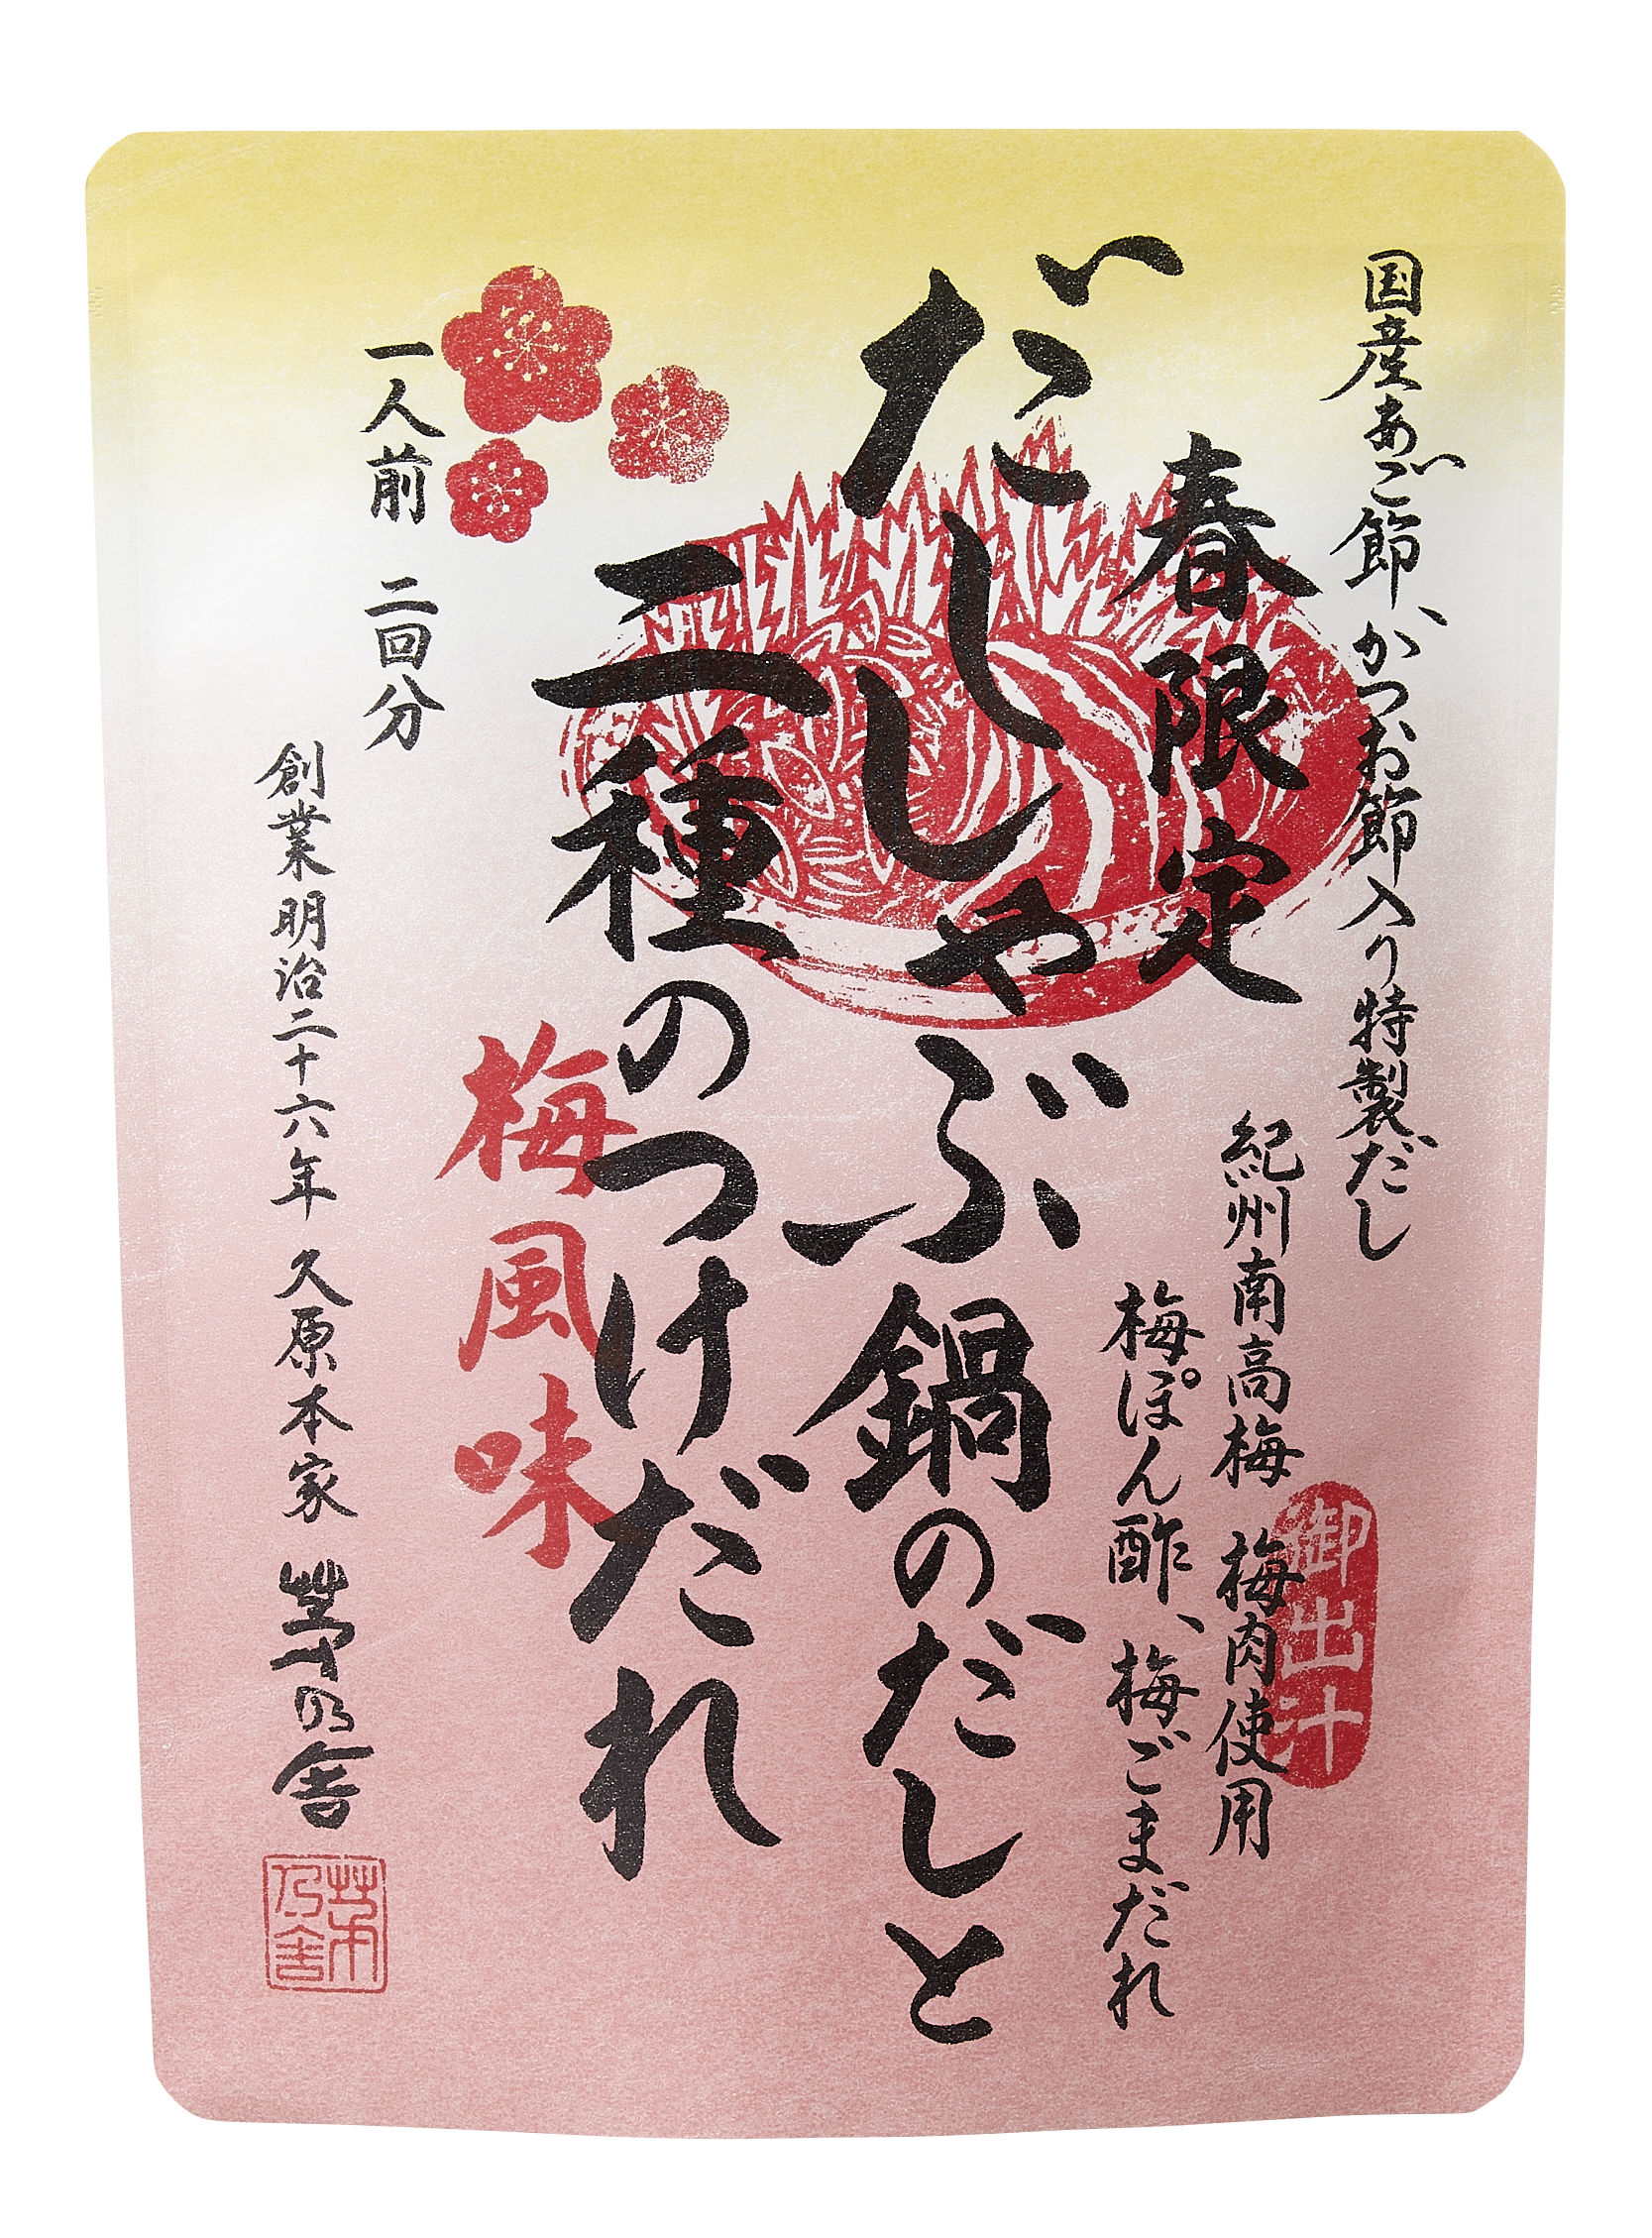 国産あご節、かつお節入り特製だし
紀州南高梅 梅肉使用
梅ぽん酢、梅ごまだれ
御出汁
春限定
だししゃぶ鍋のだしと
二種のつけだれ
梅風味
一人前 二回分
創業明治二十六年 久原本家 茅乃舎
茅乃舎